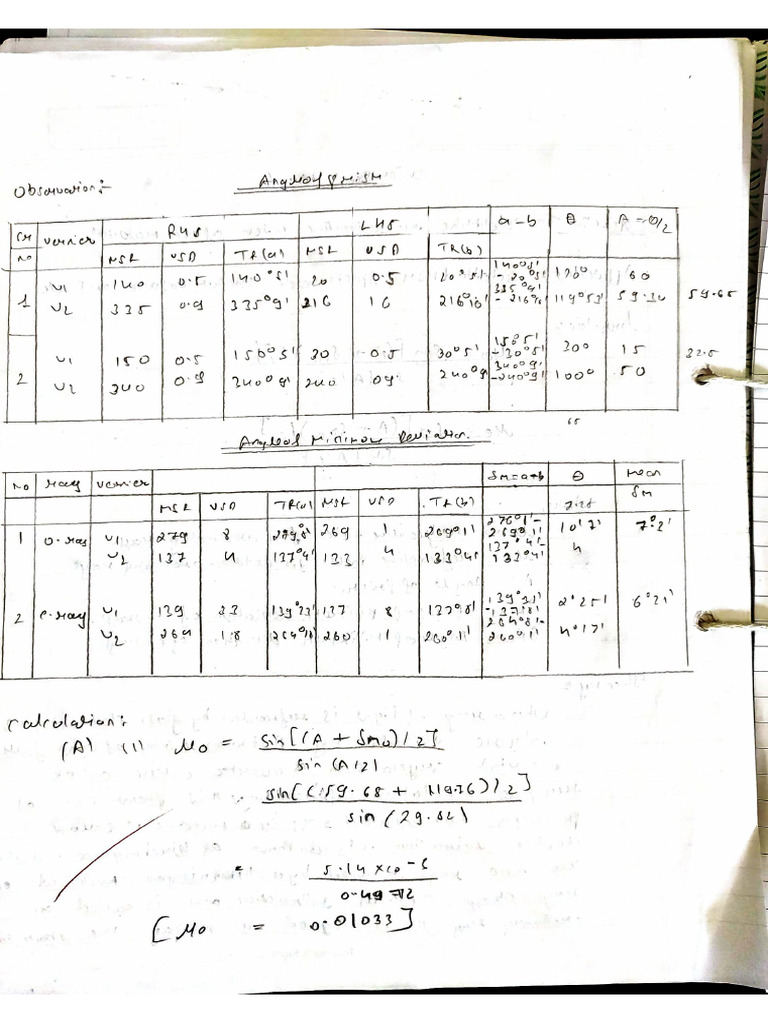 Observation:-
Angle of prism
Sr no Vernier RHS LHS a-b θ A = θ/2
MSR VSD TR(a) MSR VSD TR(b)
1 V1 140 0.5 140°5' 20 0.5 20°5' 140°5' - 20°5' 120° 60
V2 335 0.9 335°9' 216 16 216°16' 335°9' 119°53' 59.30 59.65
2 V1 150 0.5 150°5' 30 0.5 30°5' 150°5' - 30°5' 300 15 32.5
V2 340 0.9 340°9' 240 09 240°9' 340°9' - 240°9' 100° 50
65
Angle of Minimum Deviation
No ray Vernier Sm=a-b θ Mean Sm
MSR VSD TR(a) MSR VSD TR(b)
1 O-ray V1 279 8 269 1 269°1' 269°1' 10°7' 7°2'
V2 137 4 137°4' 133 4 133°4' 137°4' - 133°4' 4
2 e-ray V1 139 33 139°33' 137 8 137°8' 139°33' - 137°8' 2°25' 6°21'
V2 264 1.8 260 1 260°1' 260°1' 4°17'
Calculation:
(A) (1) μo = sin[(A + Smo)/2]
sin(A/2)
sin[(59.68 + 119.36)/2]
sin(29.82)
= 5.14 × 10-3
0.4972
[μo = 0.01033]